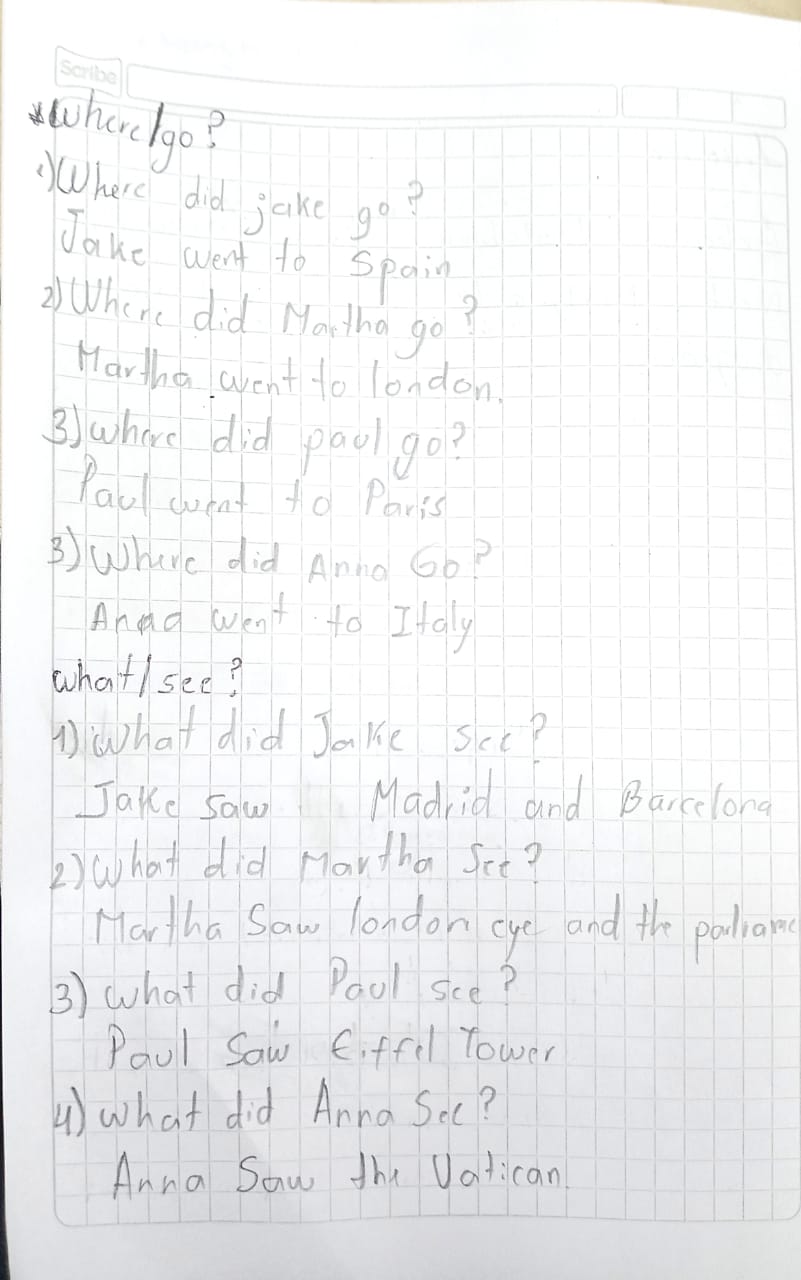 Scribe
*Where/go?
1) Where did jake go?
Jake went to Spain
2) Where did Martha go?
Martha went to london.
3) where did paul go?
Paul went to Paris
3) Where did Anna Go?
Anna went to Italy
what/see?
1) What did Jake see?
Jake saw Madrid and Barcelona
2) What did Martha See?
Martha Saw london eye and the parliame
3) what did Paul see?
Paul Saw Eiffel Tower
4) what did Anna See?
Anna Saw the Vatican.